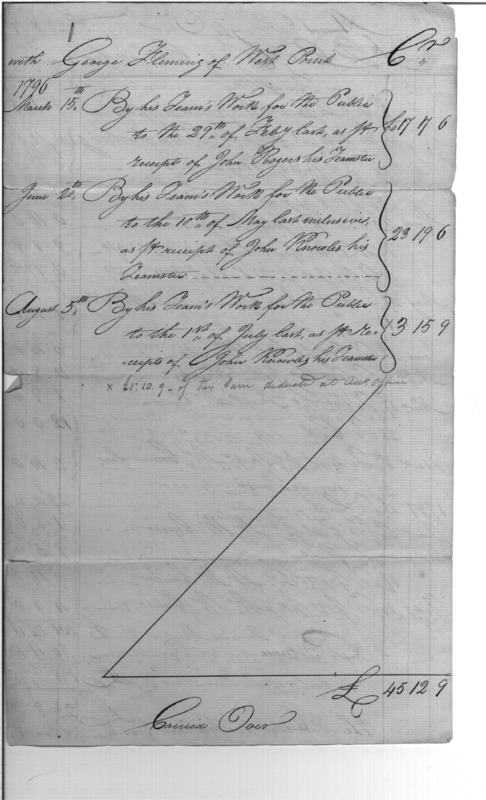 with George Fleming of West Point Cr
1796
March 15th By his Team's Work for the Public
to the 29th of Feby last, as pr £17 7 6
receipt of John Rogers his Teamster
June 20th By his Team's Work for the Public
to the 10th of May last inclusive, 23 19 6
as pr receipt of John Knowles his
Teamster
August 5th By his Team's Work for the Public
to the 1st of July last, as pr re- x 3 15 9
ceipts of John Knowles his Teamster
x £1. 10. 9. of this Sum deducted at Audrs office
£ 45 12 9
Carried Over